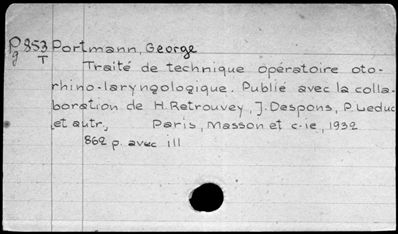 Pg 853 Portmann, George
T
Traité de technique opératoire oto-
rhino-laryngologique. Publié avec la colla-
boration de H. Retrouvey, J. Despons, P. Leduc
et autr, Paris, Masson et c-ie, 1932
862 p. avec ill